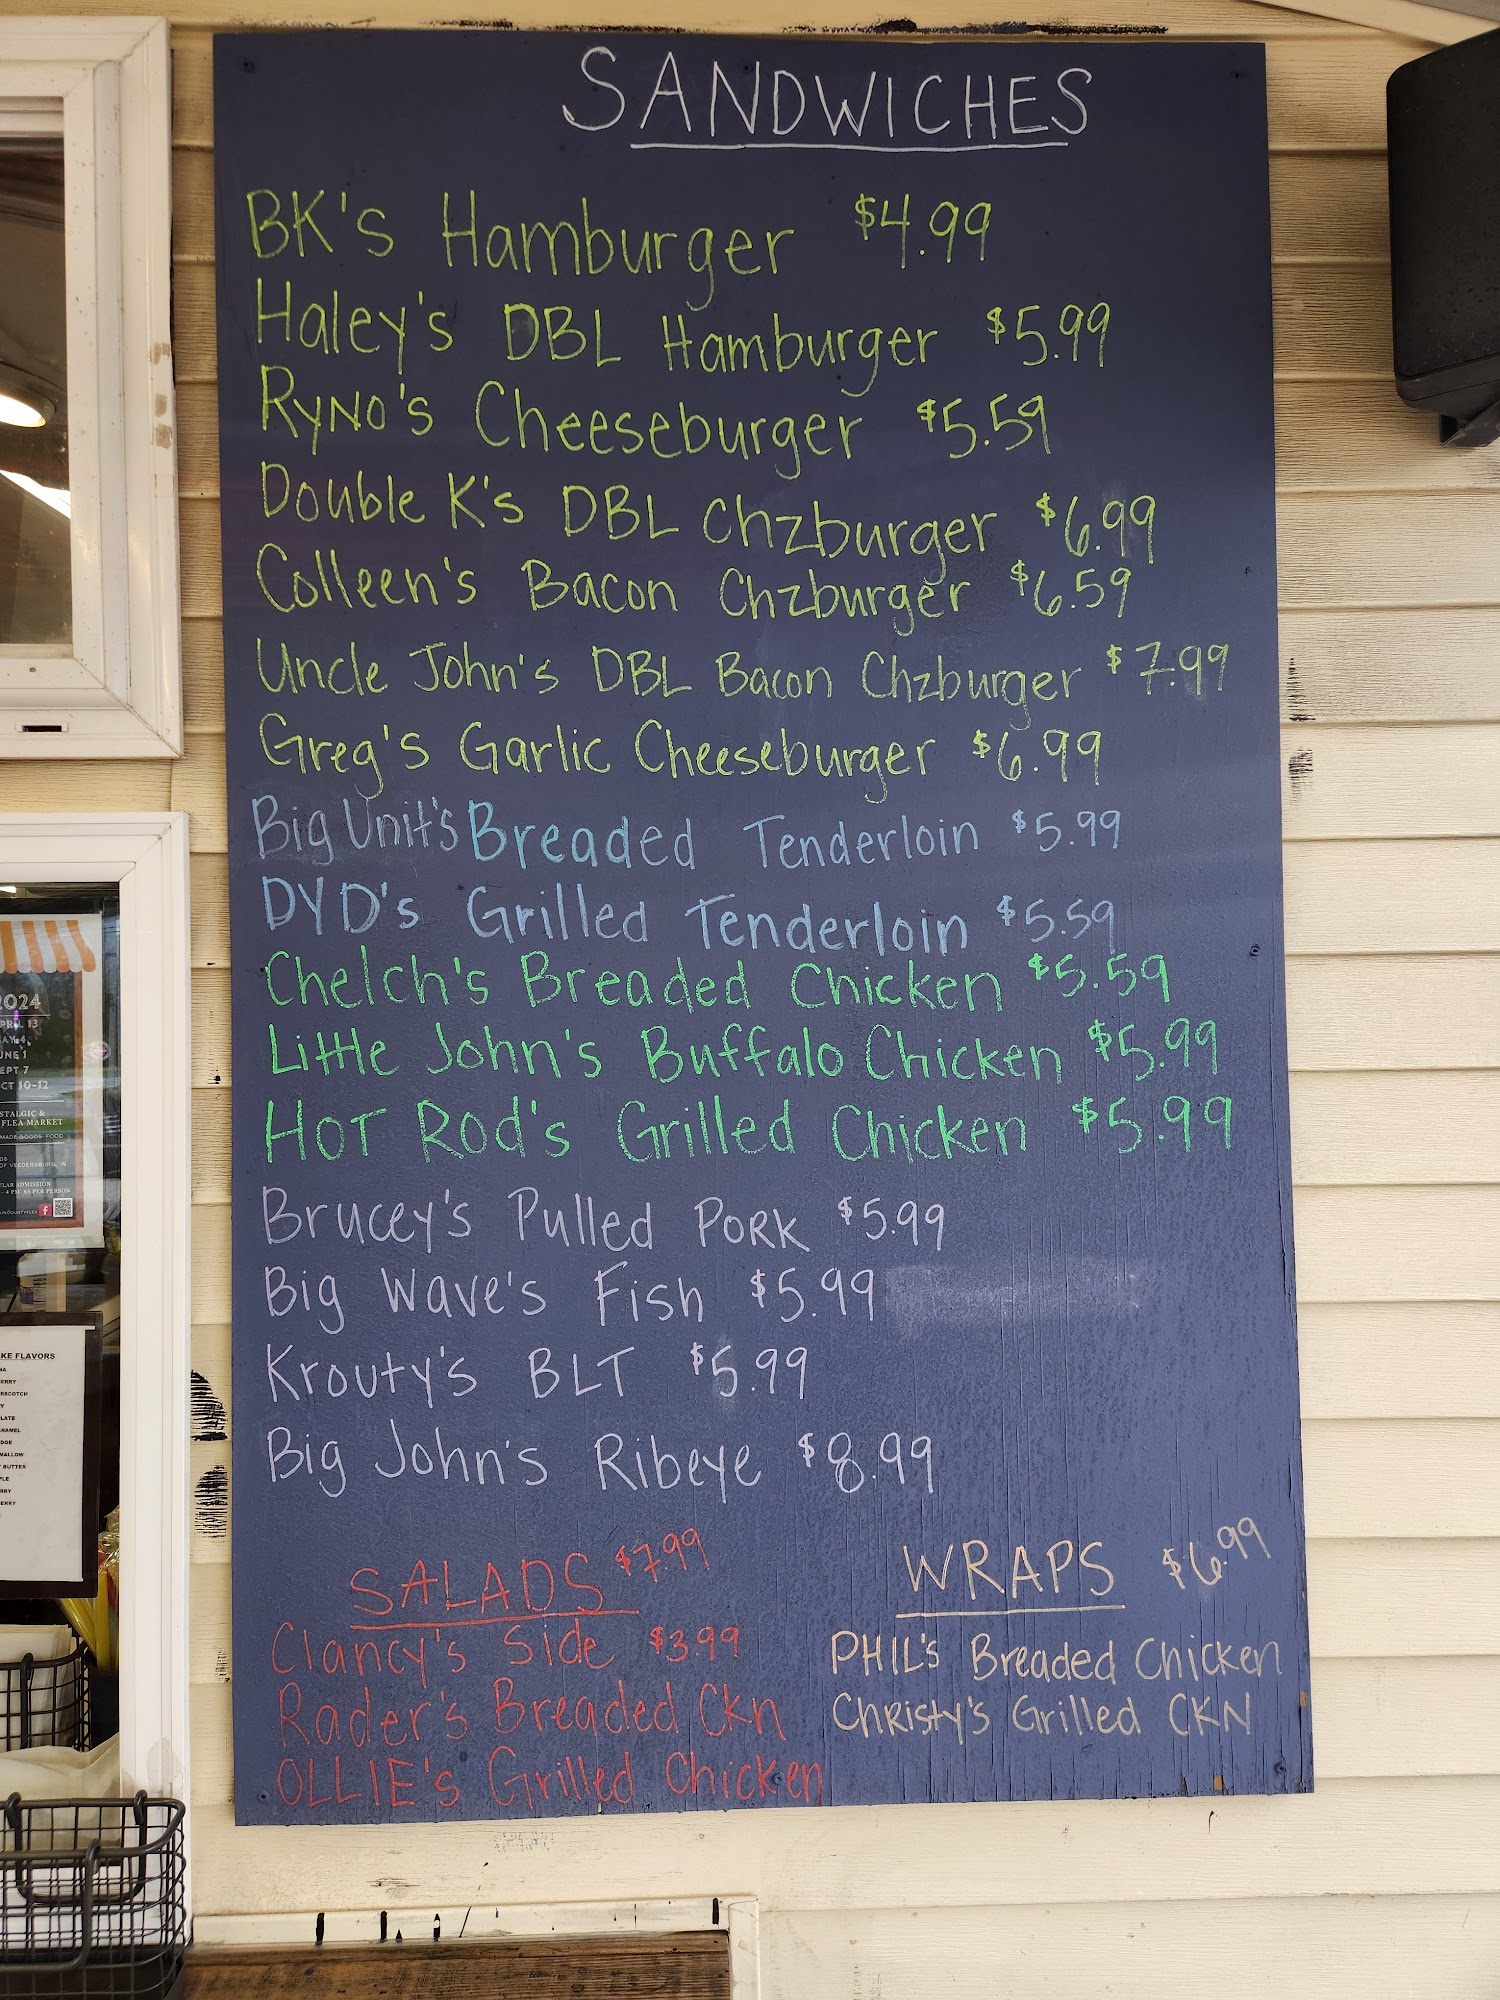 SANDWICHES
BK's Hamburger $4.99
Haley's DBL Hamburger $5.99
RYNO's Cheeseburger $5.59
Double K's DBL Chzburger $6.99
Colleen's Bacon Chzburger $6.59
Uncle John's DBL Bacon Chzburger $7.99
Greg's Garlic Cheeseburger $6.99
Big Unit's Breaded Tenderloin $5.99
DYD's Grilled Tenderloin $5.59
Chelch's Breaded Chicken $5.59
Little John's Buffalo Chicken $5.99
HOT ROD's Grilled Chicken $5.99
Brucey's Pulled PORK $5.99
Big Wave's Fish $5.99
Krouty's BLT $5.99
Big John's Ribeye $8.99
SALADS $7.99
Clancy's Side $3.99
Rader's Breaded Ckn
OLLIE's Grilled Chicken
WRAPS $6.99
PHIL's Breaded Chicken
Christy's Grilled CKN
2024
13
4
1
7
10-12
FLEA MARKET
OF VEEDERSBURG, IN
ADMISSION
4 PM $5 PER PERSON
FLAVORS